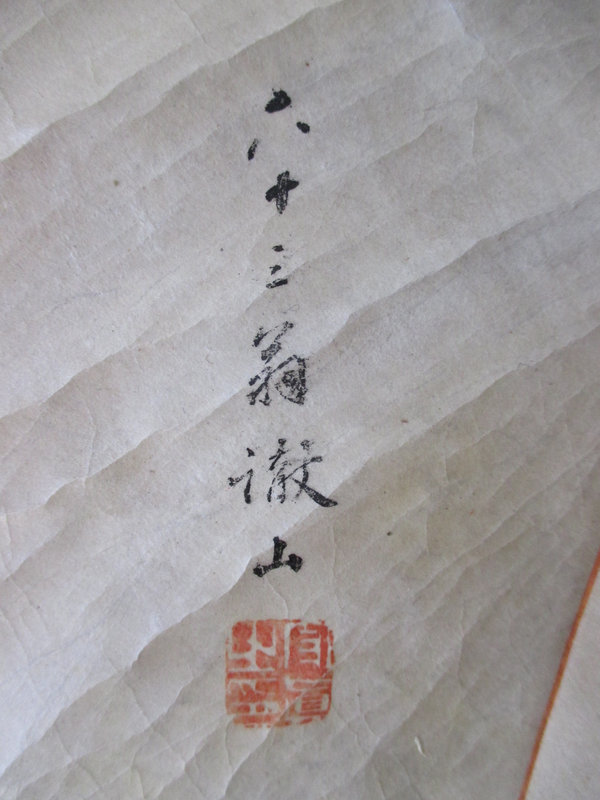 六十三翁徹山